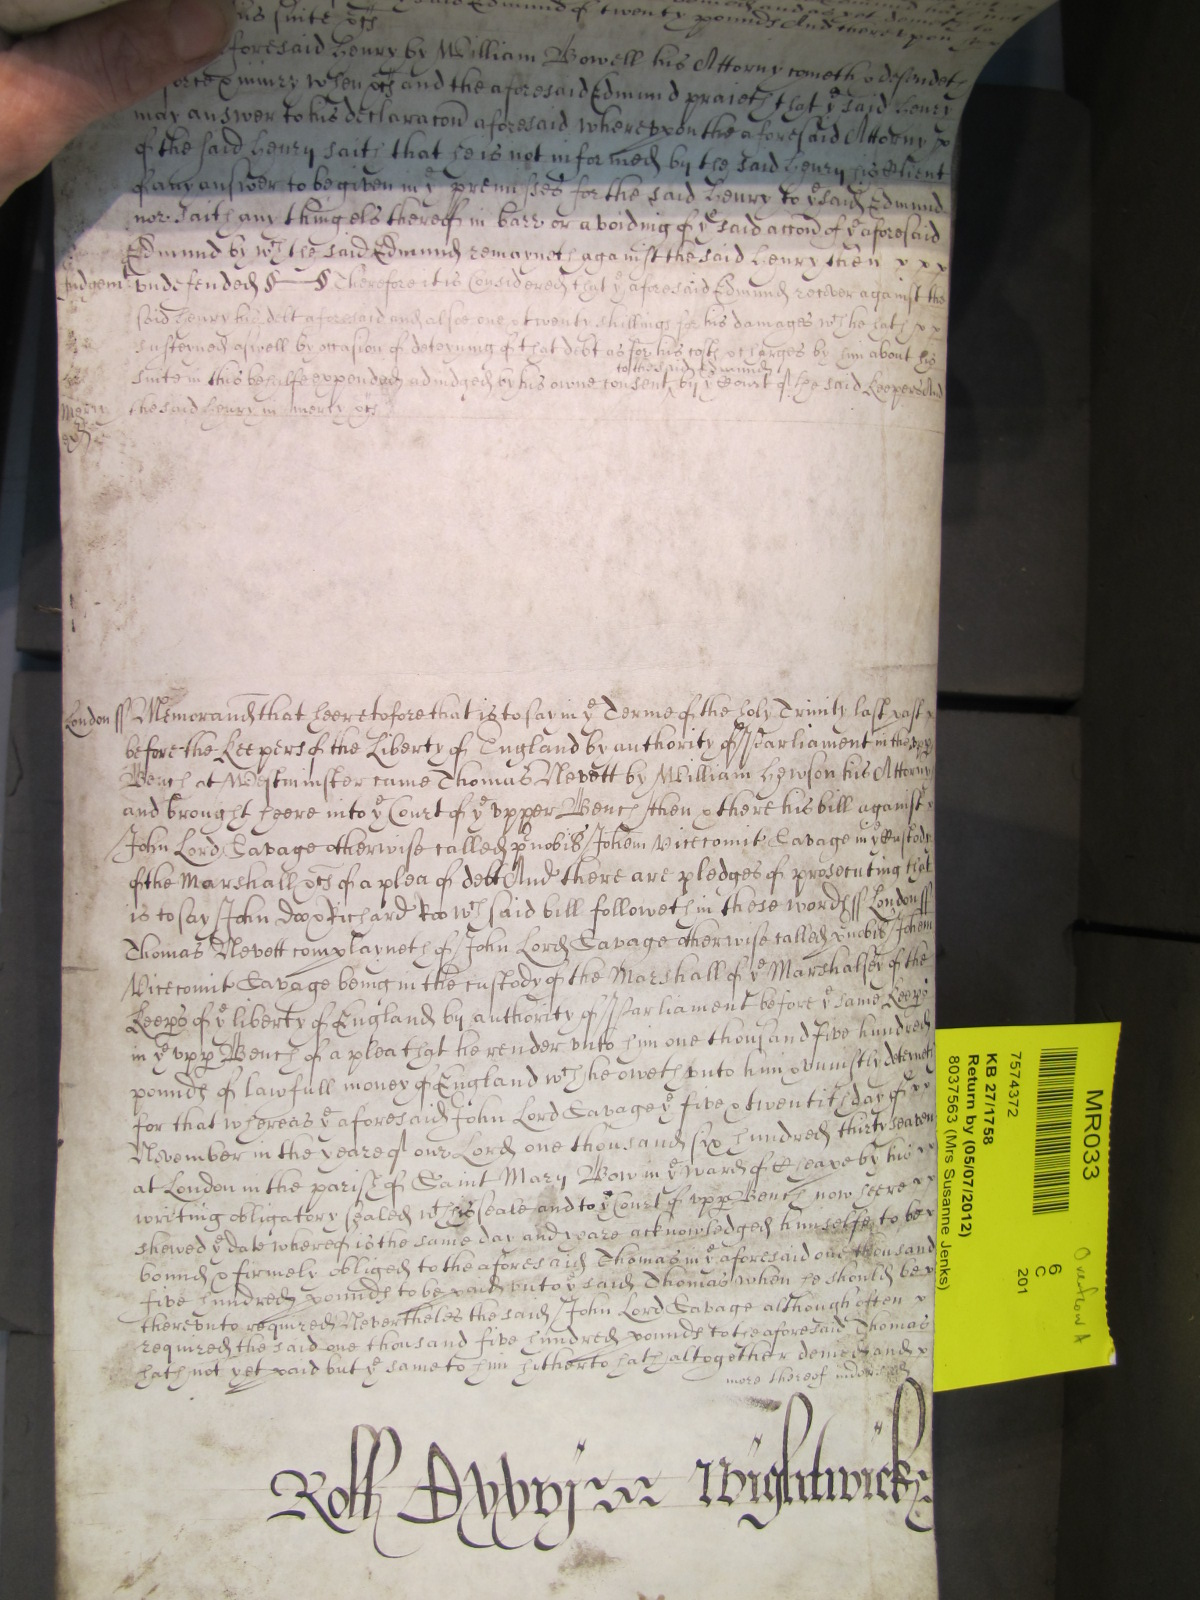 his suite &c
aforesaid Henry by William Bowell his Attorny cometh & defendeth
force & iniury when &c and the aforesaid Edmund praieth that ye said Henry
may answer to his declaracon aforesaid wherevpon the aforesaid Attorny
of the said Henry saith that he is not informed by the said Henry his Client
of any answer to be given in ye premisses for the said Henry to ye said Edmund
nor saith any thing els thereof in barr or avoiding of ye said accon of ye aforesaid
Edmund by wch the said Edmund remayneth against the said Henry then x x x
Judgemt vndefended § § Therefore it is Considered that ye aforesaid Edmund recover against the
said Henry his debt aforesaid and alsoe one & twenty shillings for his damages wch he hath x x
susteyned aswell by occasion of deteyning of that debt as for his costs & charges by him about his
to the said Edmund
suite in this behalfe expended adiudged by his owne consent by ye Court of the said Keepers And
Mercy the said Henry in mercy &c
London ss Memorand that heeretofore that is to say in ye Terme of the holy Trinity last past x
before the Keepers of the Liberty of England by authority of Parliament in the vpp
Bench at Westminster came Thomas Nevett by William Hewson his Attorny
and brought heere into ye Court of ye vpper Bench then & there his bill against x
John Lord Savage otherwise called p nobis Johem Vicecomit Savage in ye Custody
of the Marshall &c of a plea of debt And there are pledges of prosecuting that
is to say John Doo & Richard Roo wch said bill followeth in these words ss London ss
Thomas Nevett complayneth of John Lord Savage otherwise called p nobis Johem
Vicecomit Savage being in the custody of the Marshall of ye Marshalsey of the
Keeps of ye liberty of England by authority of Parliament before ye same Keeps
in ye vpp Bench of a plea that he render vnto him one thousand five hundred
pounds of lawfull money of England wch he oweth vnto him & vniustly deteyneth
for that whereas ye aforesaid John Lord Savage ye five & twentith day of x x
November in the yeare of our Lord one thousand six hundred thirty seaven
at London in the parish of Saint Mary Bow in ye Ward of Cheape by his x x
writing obligatory sealed wth his seale and to ye Court of vpp Bench now heere x x
shewed ye date whereof is the same day and yeare acknowledged himselfe to be x
bound & firmely obliged to the aforesaid Thomas in ye aforesaid one thousand
five hundred pounds to be paid vnto ye said Thomas when he should be x
therevnto required Neverthelesse the said John Lord Savage although often x
required the said one thousand five hundred pounds to the aforesaid Thomas
hath not yet paid but ye same to him hitherto hath altogether denied and x
more thereof indorsed
Roll Wightwick
MR033
7574372
KB 27/1758
Return by (05/07/2012)
8037563 (Mrs Susanne Jenks)
6
C
201